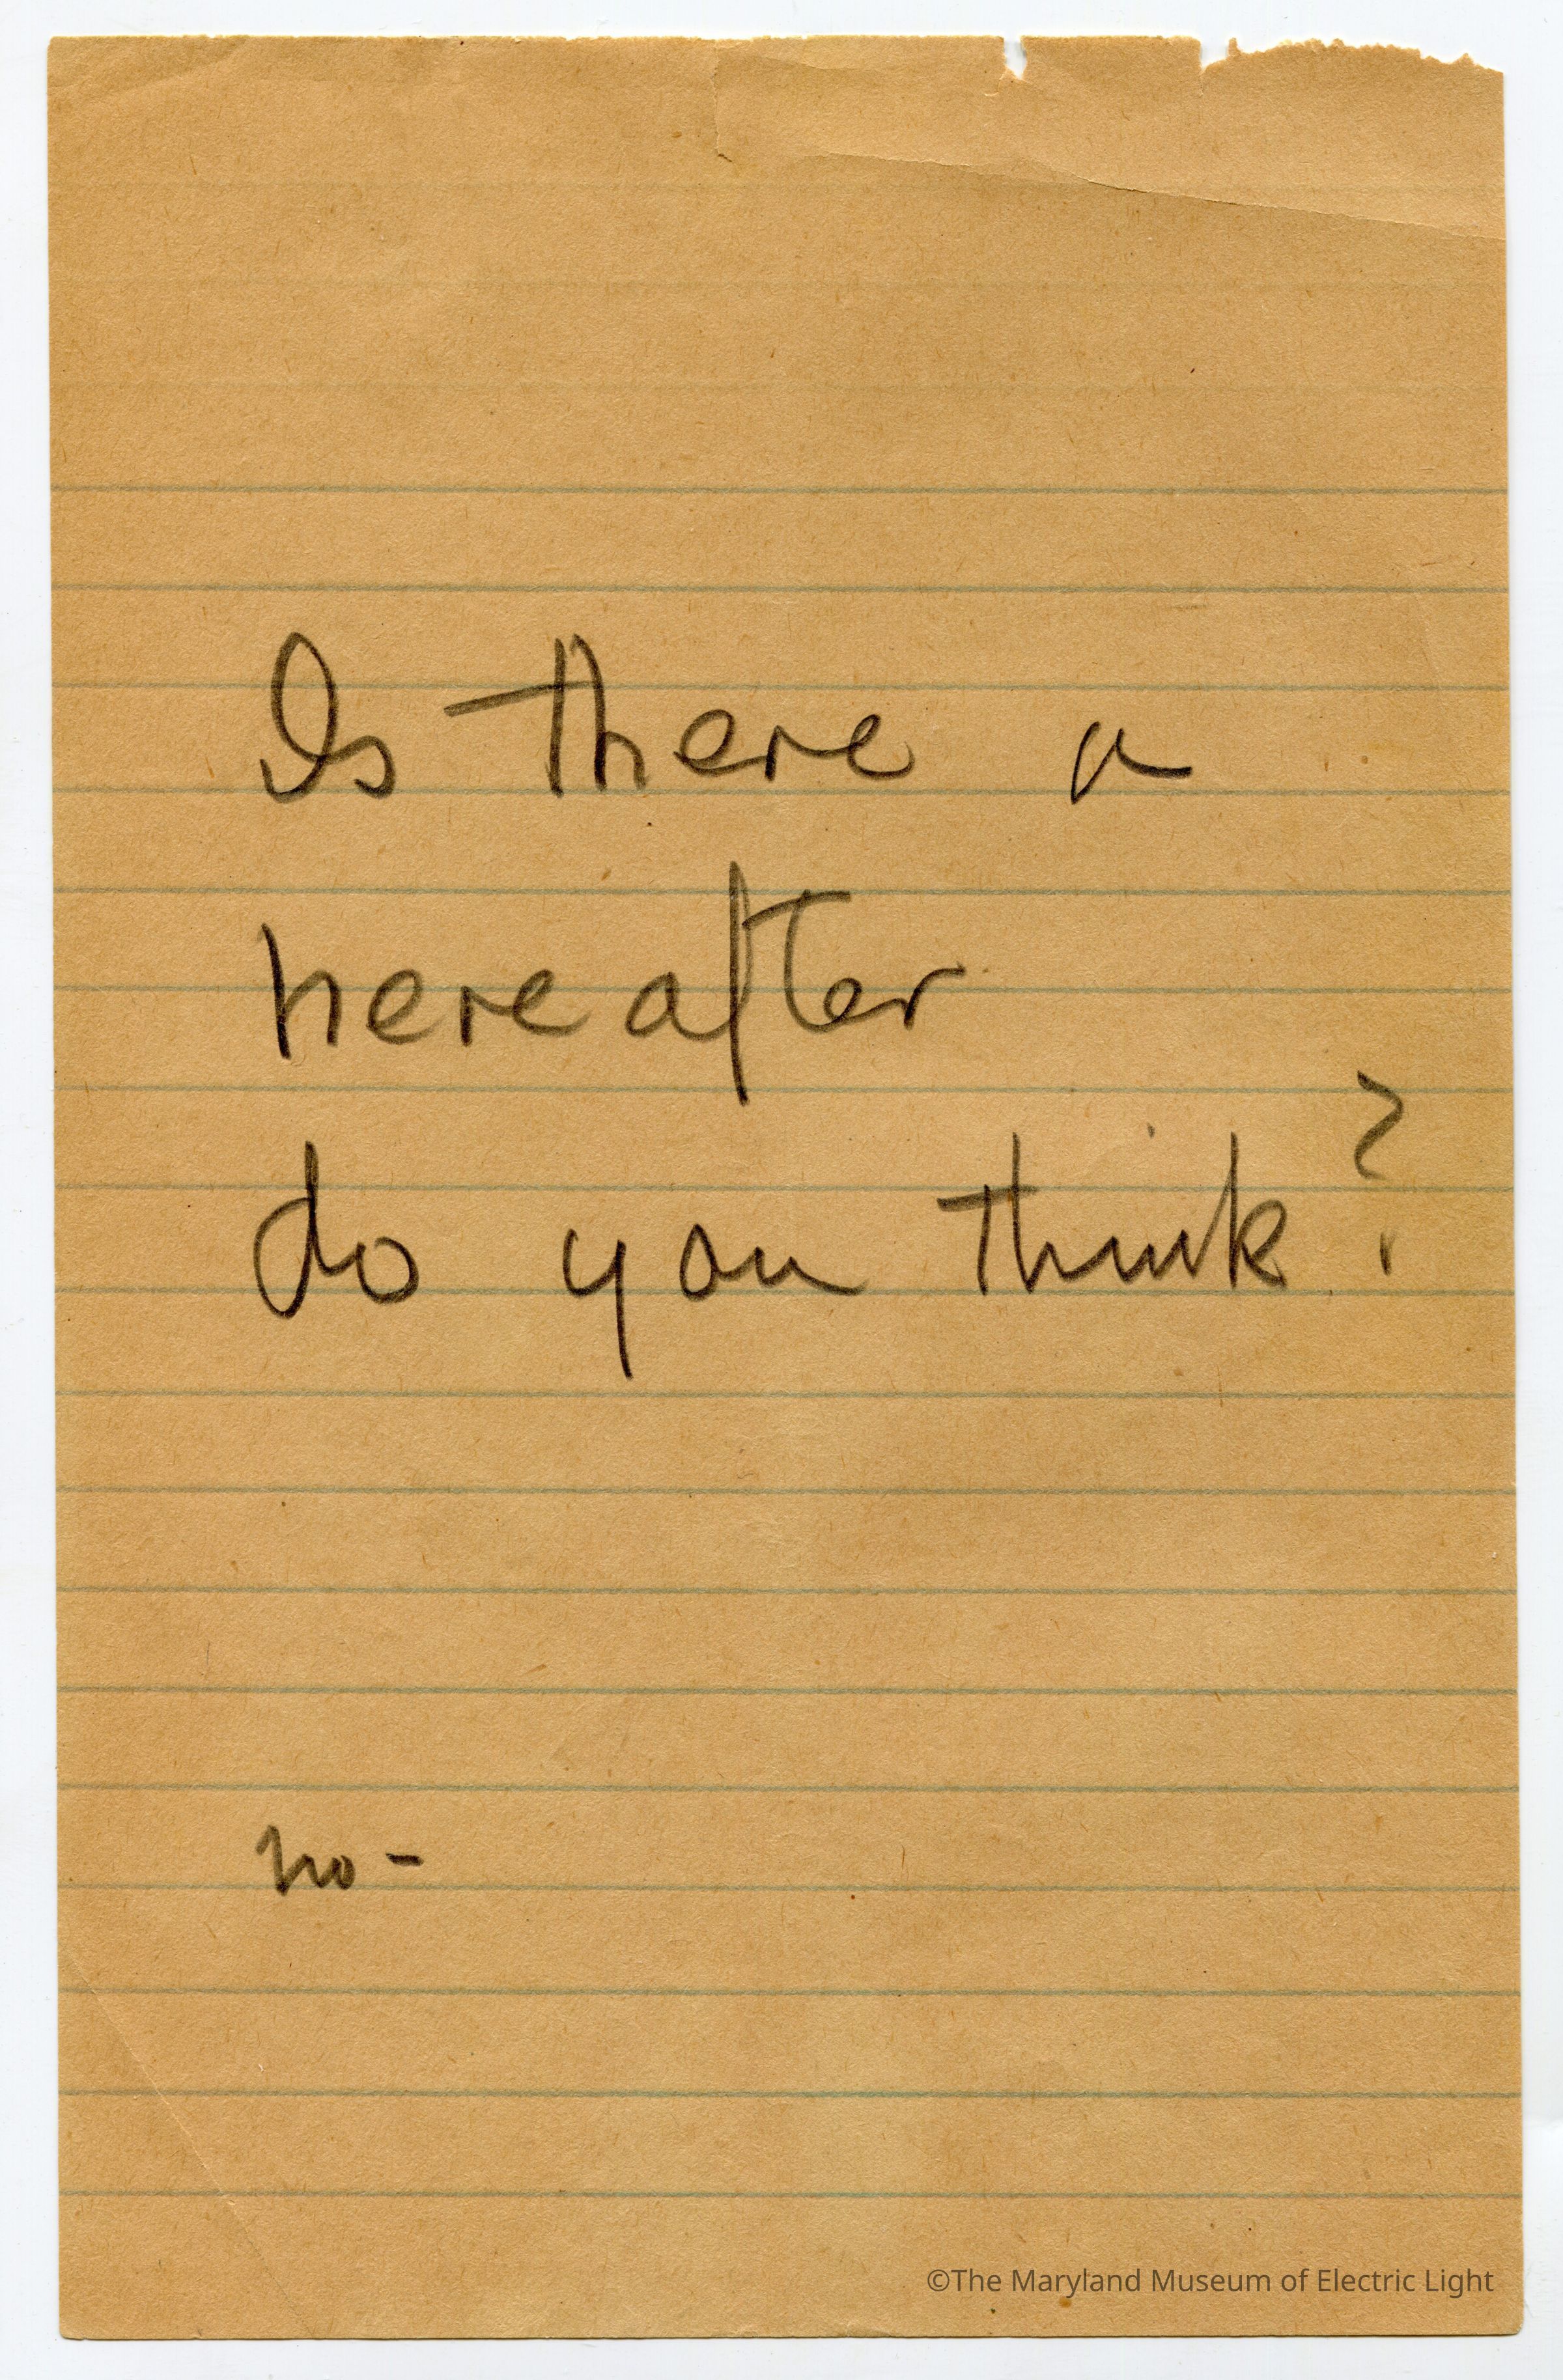 Is there a
hereafter
do you think?
no -
©The Maryland Museum of Electric Light